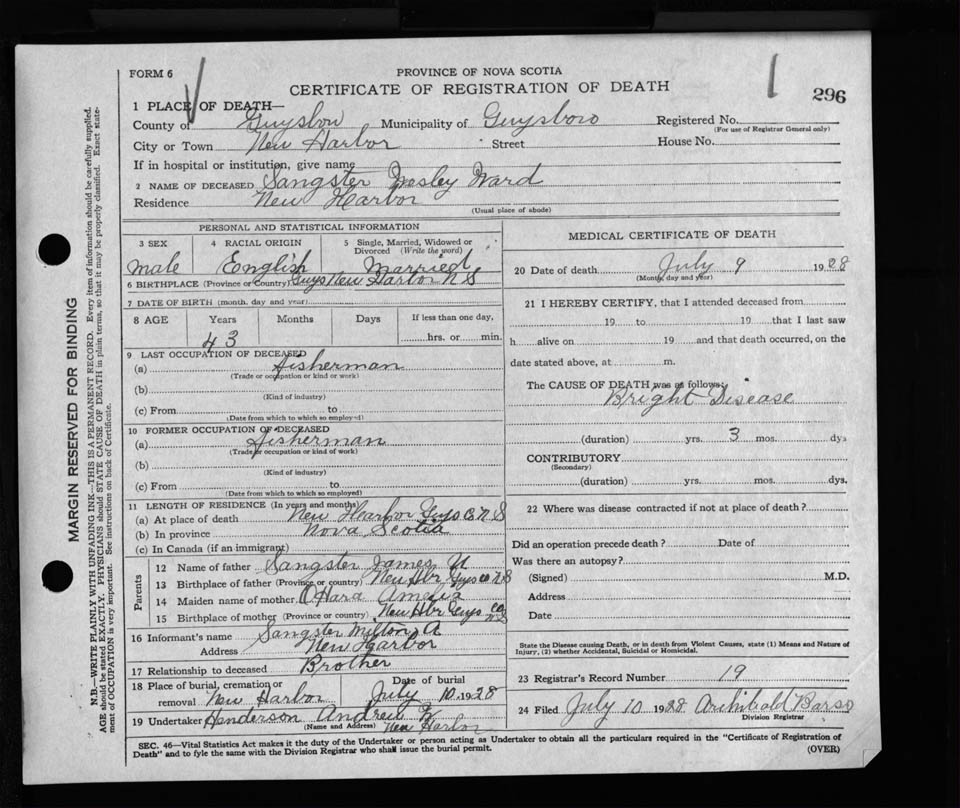 FORM 6
PROVINCE OF NOVA SCOTIA
CERTIFICATE OF REGISTRATION OF DEATH
296
1 PLACE OF DEATH—
County of Guysboro Municipality of Guysboro Registered No.
(For use of Registrar General only)
City or Town New Harbor Street House No.
If in hospital or institution, give name
2 NAME OF DECEASED Sangster Wesley Ward
Residence New Harbor
(Usual place of abode)
PERSONAL AND STATISTICAL INFORMATION
3 SEX 4 RACIAL ORIGIN 5 Single, Married, Widowed or Divorced (Write the word)
Male English Married
6 BIRTHPLACE (Province or Country) Guys New Harbor N S
7 DATE OF BIRTH (month, day and year)
8 AGE Years Months Days If less than one day,
43 hrs. or min.
9 LAST OCCUPATION OF DECEASED
(a) Fisherman
(Trade or occupation or kind or work)
(b)
(Kind of industry)
(c) From to
(Date from which to which so employed)
10 FORMER OCCUPATION OF DECEASED
(a) Fisherman
(Trade or occupation or kind of work)
(b)
(Kind of industry)
(c) From to
(Date from which to which so employed)
11 LENGTH OF RESIDENCE (In years and months)
(a) At place of death New Hearbor Guys Co N S
(b) In province Nova Scotia
(c) In Canada (if an immigrant)
Parents
12 Name of father Sangster James
13 Birthplace of father (Province or country) New Hbr Guys Co N S
14 Maiden name of mother O Hara Amelia
15 Birthplace of mother (Province or country) New Hbr Guys Co N S
16 Informant's name Sangster Milton A
Address New Harbor
17 Relationship to deceased Brother
18 Place of burial, cremation or removal New Harbor Date of burial July 10 1928
19 Undertaker Henderson Andrew
(Name and Address) New Harbor
MEDICAL CERTIFICATE OF DEATH
20 Date of death July 9 1928
(Month, day and year)
21 I HEREBY CERTIFY, that I attended deceased from
19 to 19 that I last saw
h alive on 19 and that death occurred, on the
date stated above, at m.
The CAUSE OF DEATH was as follows:
Bright Disease
(duration) yrs. 3 mos. dys
CONTRIBUTORY
(Secondary)
(duration) yrs. mos. dys.
22 Where was disease contracted if not at place of death?
Did an operation precede death? Date of
Was there an autopsy?
(Signed) M.D.
Address
Date
State the Disease causing Death, or in death from Violent Causes, state (1) Means and Nature of
Injury, (2) whether Accidental, Suicidal or Homicidal.
23 Registrar's Record Number 19
24 Filed July 10 1928 Archibald Barss
Division Registrar
SEC. 46—Vital Statistics Act makes it the duty of the Undertaker or person acting as Undertaker to obtain all the particulars required in the "Certificate of Registration of
Death" and to fyle the same with the Division Registrar who shall issue the burial permit.
(OVER)
MARGIN RESERVED FOR BINDING
N.B.—WRITE PLAINLY WITH UNFADING INK—THIS IS A PERMANENT RECORD. Every item of information should be carefully supplied.
AGE should be stated EXACTLY. PHYSICIANS should STATE CAUSE OF DEATH in plain terms, so that it may be properly classified. Exact state-
ment of OCCUPATION is very important. See instructions on back of Certificate.